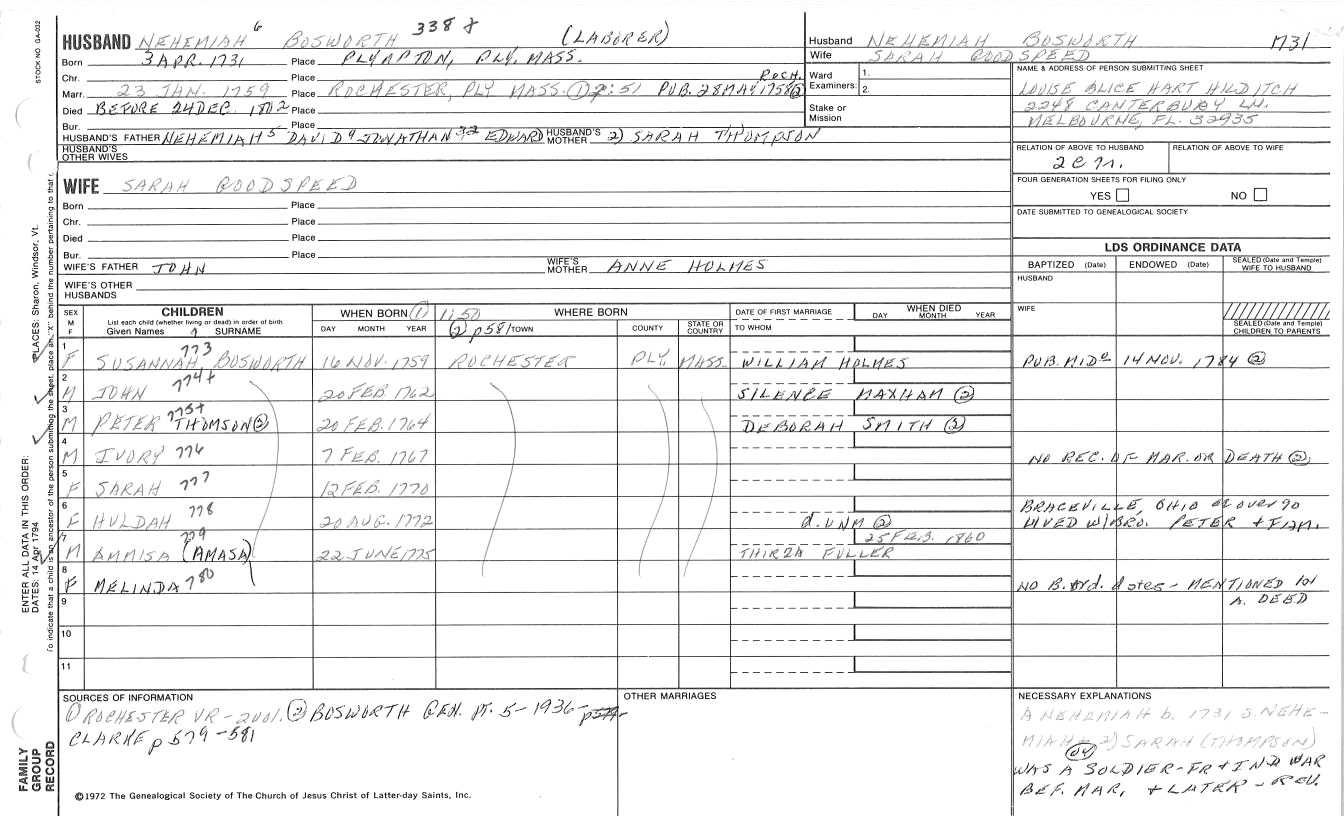 STOCK NO. GA-032
HUSBAND NEHEMIAH 6 BOSWORTH 338 + (LABORER)
Born 3 APR. 1731 Place PLYMPTON, PLY. MASS.
Chr. Place ROCH.
Marr. 23 JAN. 1759 Place ROCHESTER, PLY MASS. ① 2:51 PUB. 28 MAY 1758 ②
Died BEFORE 24 DEC. 1802 Place
Bur. Place
HUSBAND'S FATHER NEHEMIAH 5 DAVID 4 JONATHAN 3 2 EDWARD HUSBAND'S MOTHER 2) SARAH THOMPSON
HUSBAND'S OTHER WIVES
Husband NEHEMIAH BOSWORTH 1731
Wife SARAH GOODSPEED
Ward Examiners: 1.
2.
Stake or Mission
NAME & ADDRESS OF PERSON SUBMITTING SHEET
LOUISE ALICE HART HILDITCH
2248 CANTERBURY LN.
MELBOURNE, FL. 32935
RELATION OF ABOVE TO HUSBAND RELATION OF ABOVE TO WIFE
FOUR GENERATION SHEETS FOR FILING ONLY
YES NO
DATE SUBMITTED TO GENEALOGICAL SOCIETY
WIFE SARAH GOODSPEED
Born Place
Chr. Place
Died Place
Bur. Place
WIFE'S FATHER JOHN WIFE'S MOTHER ANNE HOLMES
WIFE'S OTHER HUSBANDS
LDS ORDINANCE DATA
BAPTIZED (Date) ENDOWED (Date) SEALED (Date and Temple) WIFE TO HUSBAND
HUSBAND
WIFE
SEALED (Date and Temple) CHILDREN TO PARENTS
SEX M F CHILDREN WHEN BORN ① 11:50 WHERE BORN DATE OF FIRST MARRIAGE WHEN DIED
List each child (whether living or dead) in order of birth
Given Names SURNAME DAY MONTH YEAR ② p581 TOWN COUNTY STATE OR COUNTRY TO WHOM DAY MONTH YEAR
1 F SUSANNAH 773 BOSWORTH 16 NOV. 1759 ROCHESTER PLY. MASS. WILLIAM HOLMES PUB. MID. 14 NOV. 1784 ②
2 M JOHN 774+ 20 FEB 1762 SILENCE MAXHAM ②
3 M PETER 775+ THOMSON ② 20 FEB. 1764 DEBORAH SMITH ②
4 M IVORY 776 7 FEB. 1767 NO REC. OF MAR. OR DEATH ②
5 F SARAH 777 12 FEB. 1770
6 F HULDAH 778 20 AUG. 1772 d. UNM ② BRACEVILLE, OHIO over 90
LIVED W/BRO. PETER + FAM.
7 M AMMISA (AMASA) 779 22 JUNE 1775 THIRZA FULLER 25 FEB. 1860
8 F MELINDA 780 NO B. ord. dates - MENTIONED in
A. DEED
9
10
11
SOURCES OF INFORMATION
① ROCHESTER VR - 2 vol. ② BOSWORTH GEN. PT. 5 - 1936 -
CLARKE p 579-581
OTHER MARRIAGES
NECESSARY EXPLANATIONS
A NEHEMIAH b. 1731 S. NEHE-
MIAH + 2) SARAH (THOMPSON)
WAS A SOLDIER - FR + IND WAR
BEF. MAR. + LATER - REV.
©1972 The Genealogical Society of The Church of Jesus Christ of Latter-day Saints, Inc.
FAMILY GROUP RECORD
ENTER ALL DATA IN THIS ORDER:
DATES: 14 Apr 1794
PLACES: Sharon, Windsor, Vt.
To indicate that a child is an ancestor of the person submitting the sheet, place an "X" behind the number pertaining to that